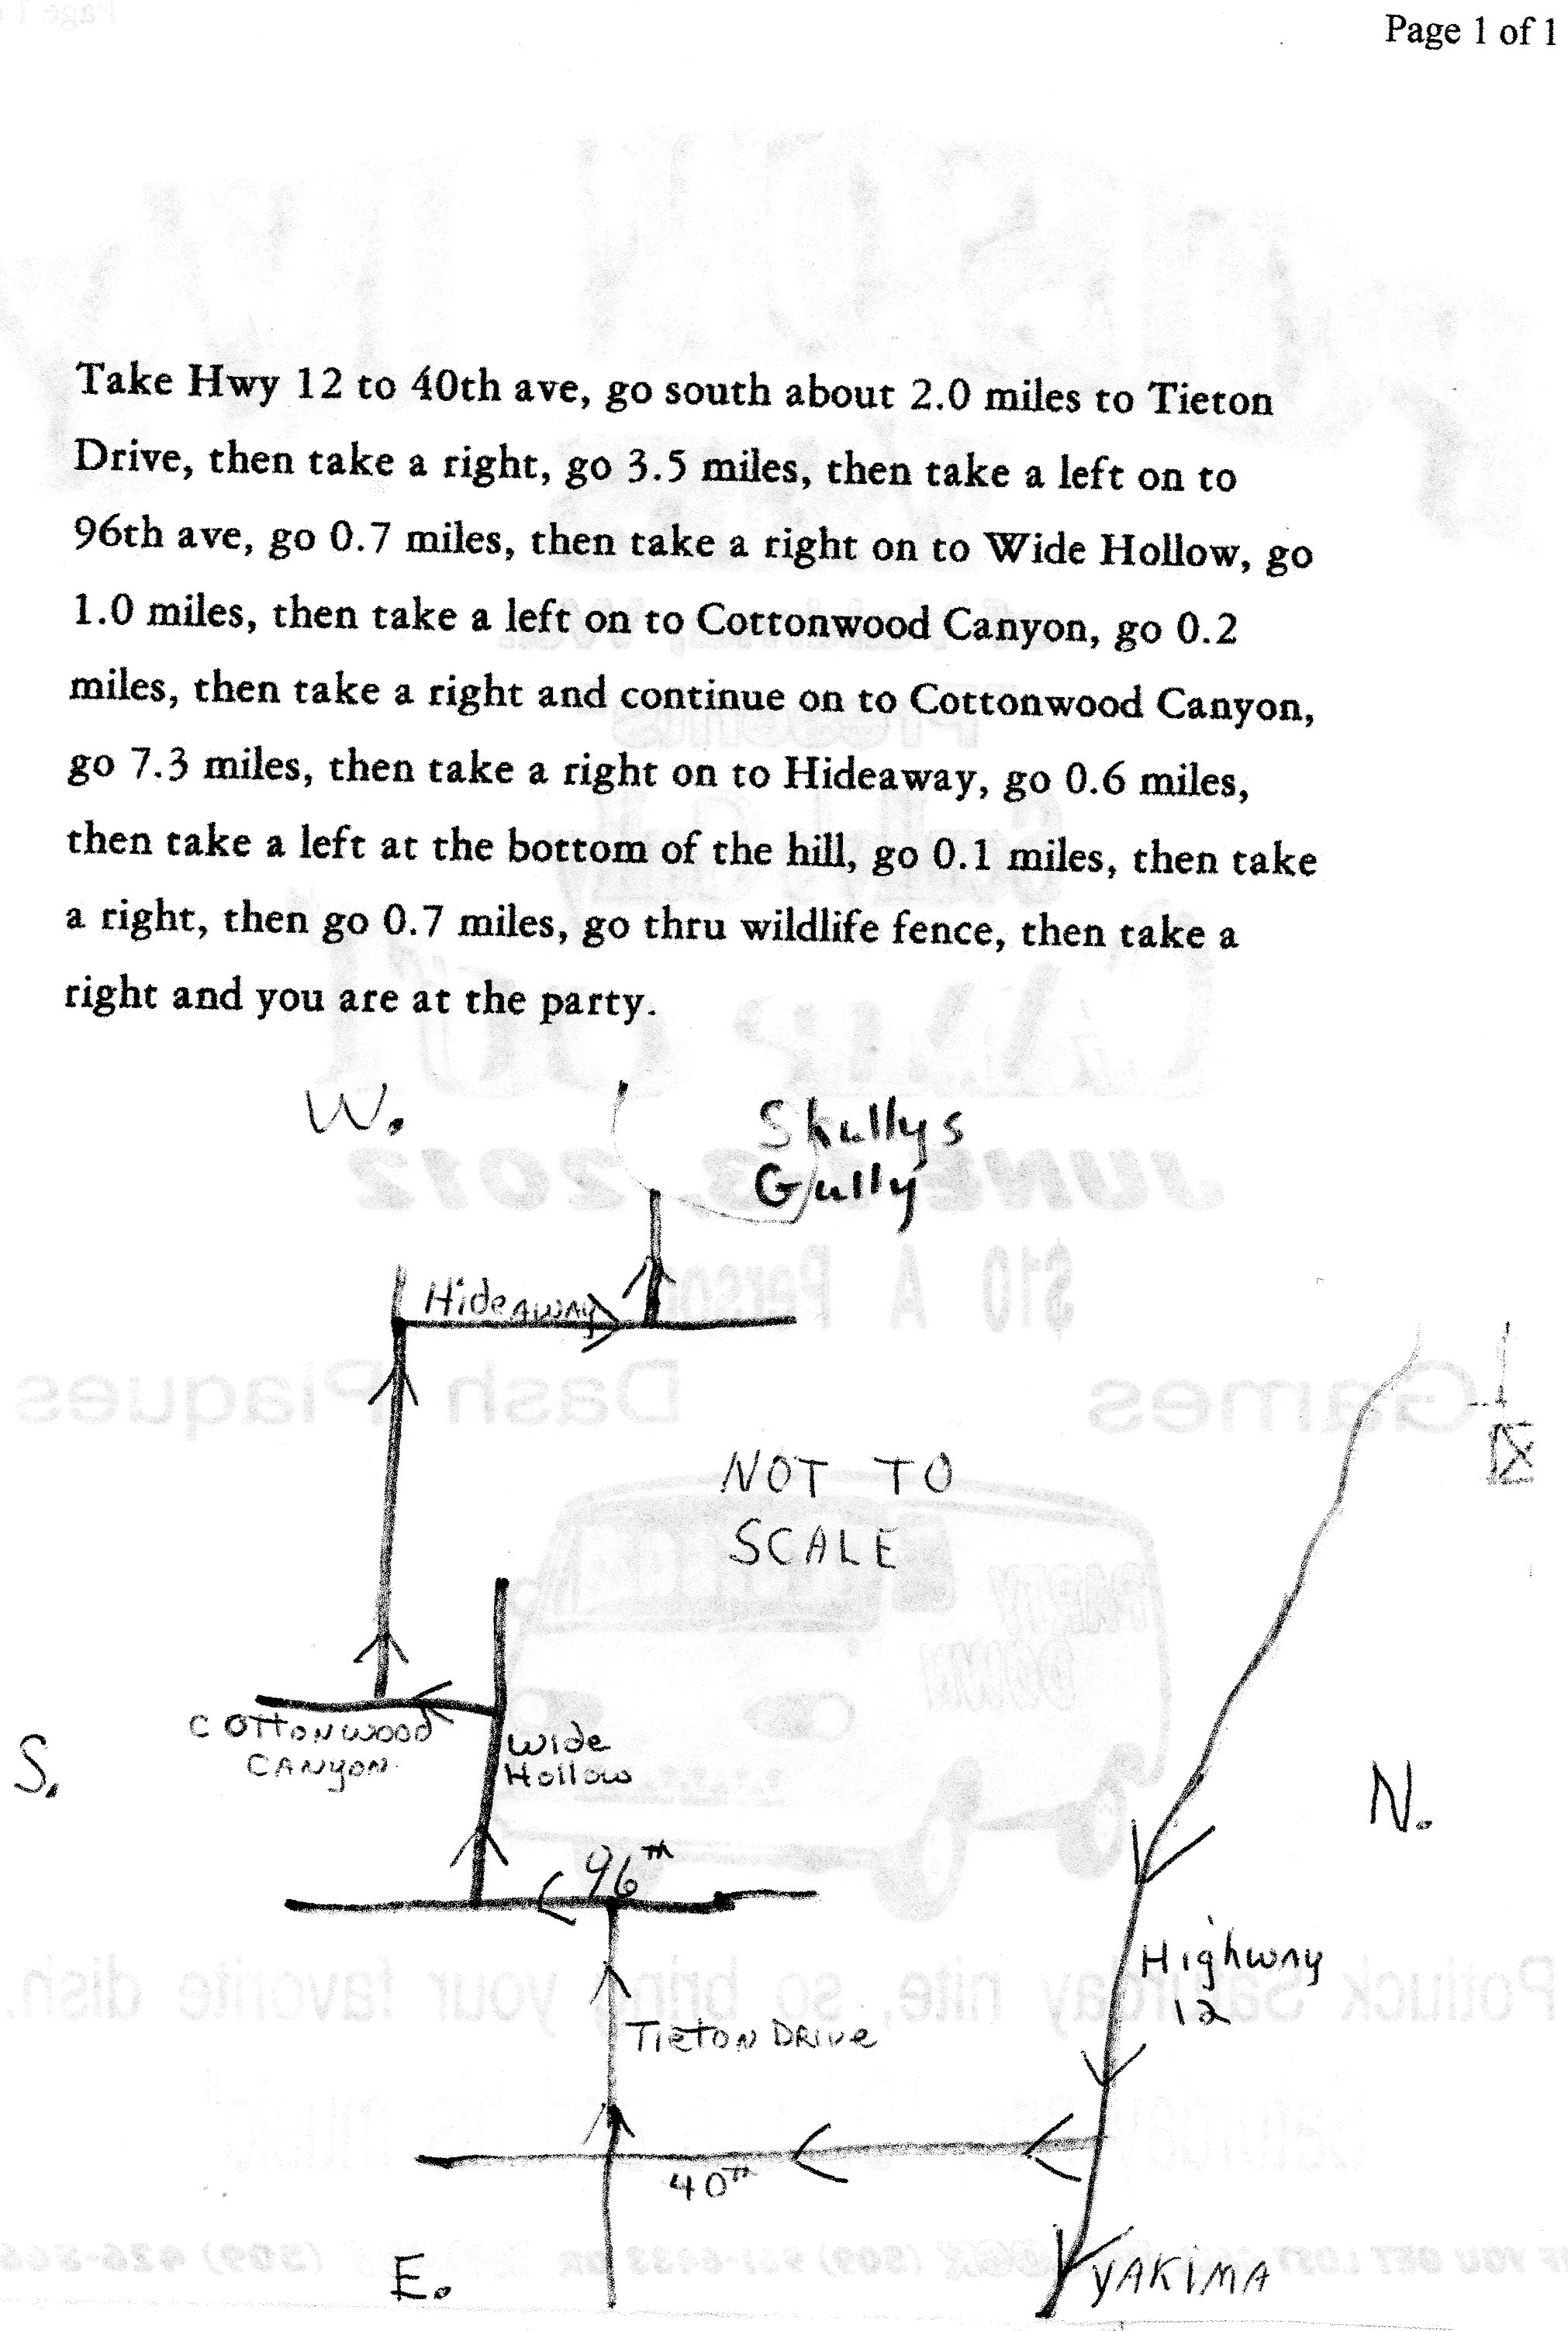 Page 1 of 1
Take Hwy 12 to 40th ave, go south about 2.0 miles to Tieton
Drive, then take a right, go 3.5 miles, then take a left on to
96th ave, go 0.7 miles, then take a right on to Wide Hollow, go
1.0 miles, then take a left on to Cottonwood Canyon, go 0.2
miles, then take a right and continue on to Cottonwood Canyon,
go 7.3 miles, then take a right on to Hideaway, go 0.6 miles,
then take a left at the bottom of the hill, go 0.1 miles, then take
a right, then go 0.7 miles, go thru wildlife fence, then take a
right and you are at the party.
W.
Skullys
Gully
JUNE 2012
$10 A Person
Hideaway
Games Dash Plaques
NOT TO
SCALE
PARTY
DOWN
Cottonwood
Canyon
Wide
Hollow
S.
N.
96th
Highway
12
Potluck Saturday nite, so bring your favorite dish.
Tieton Drive
40th
E.
YAKIMA
IF YOU GET LOST